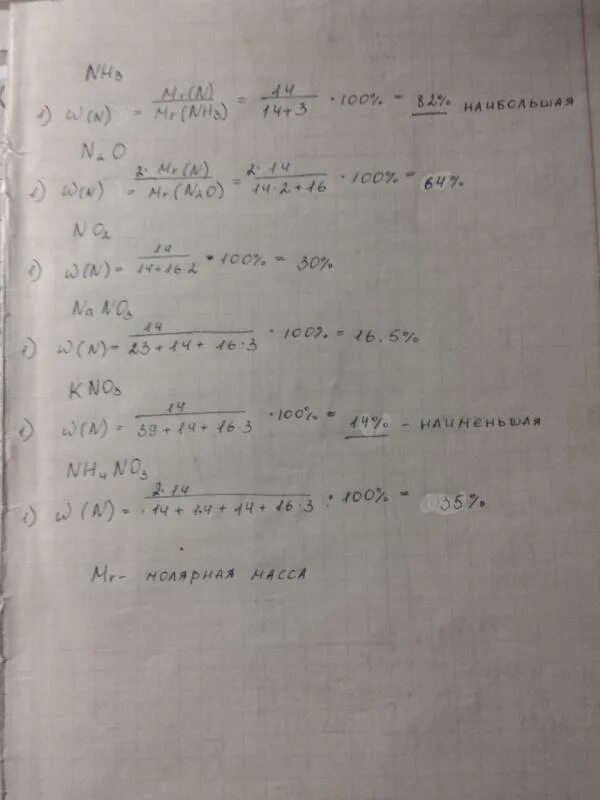 NH3
1) W(N) = Mr(N) / Mr(NH3) = 14 / 14+3 · 100% = 82% наибольшая
N2O
1) W(N) = 2·Mr(N) / Mr(N2O) = 2·14 / 14·2+16 · 100% = 64%
NO2
1) W(N) = 14 / 14+16·2 · 100% = 30%
NaNO3
1) W(N) = 14 / 23+14+16·3 · 100% = 16.5%
KNO3
1) W(N) = 14 / 39+14+16·3 · 100% = 14% - наименьшая
NH4NO3
1) W(N) = 2·14 / 14+1.4+14+16·3 · 100% = 35%
Mr- молярная масса